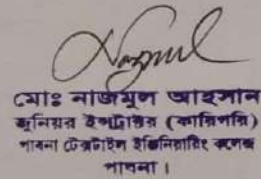 Nazmul
মোঃ নাজমুল আহসান
জুনিয়র ইন্সট্রাক্টর (কারিগরি)
পাবনা টেক্সটাইল ইঞ্জিনিয়ারিং কলেজ
পাবনা ।